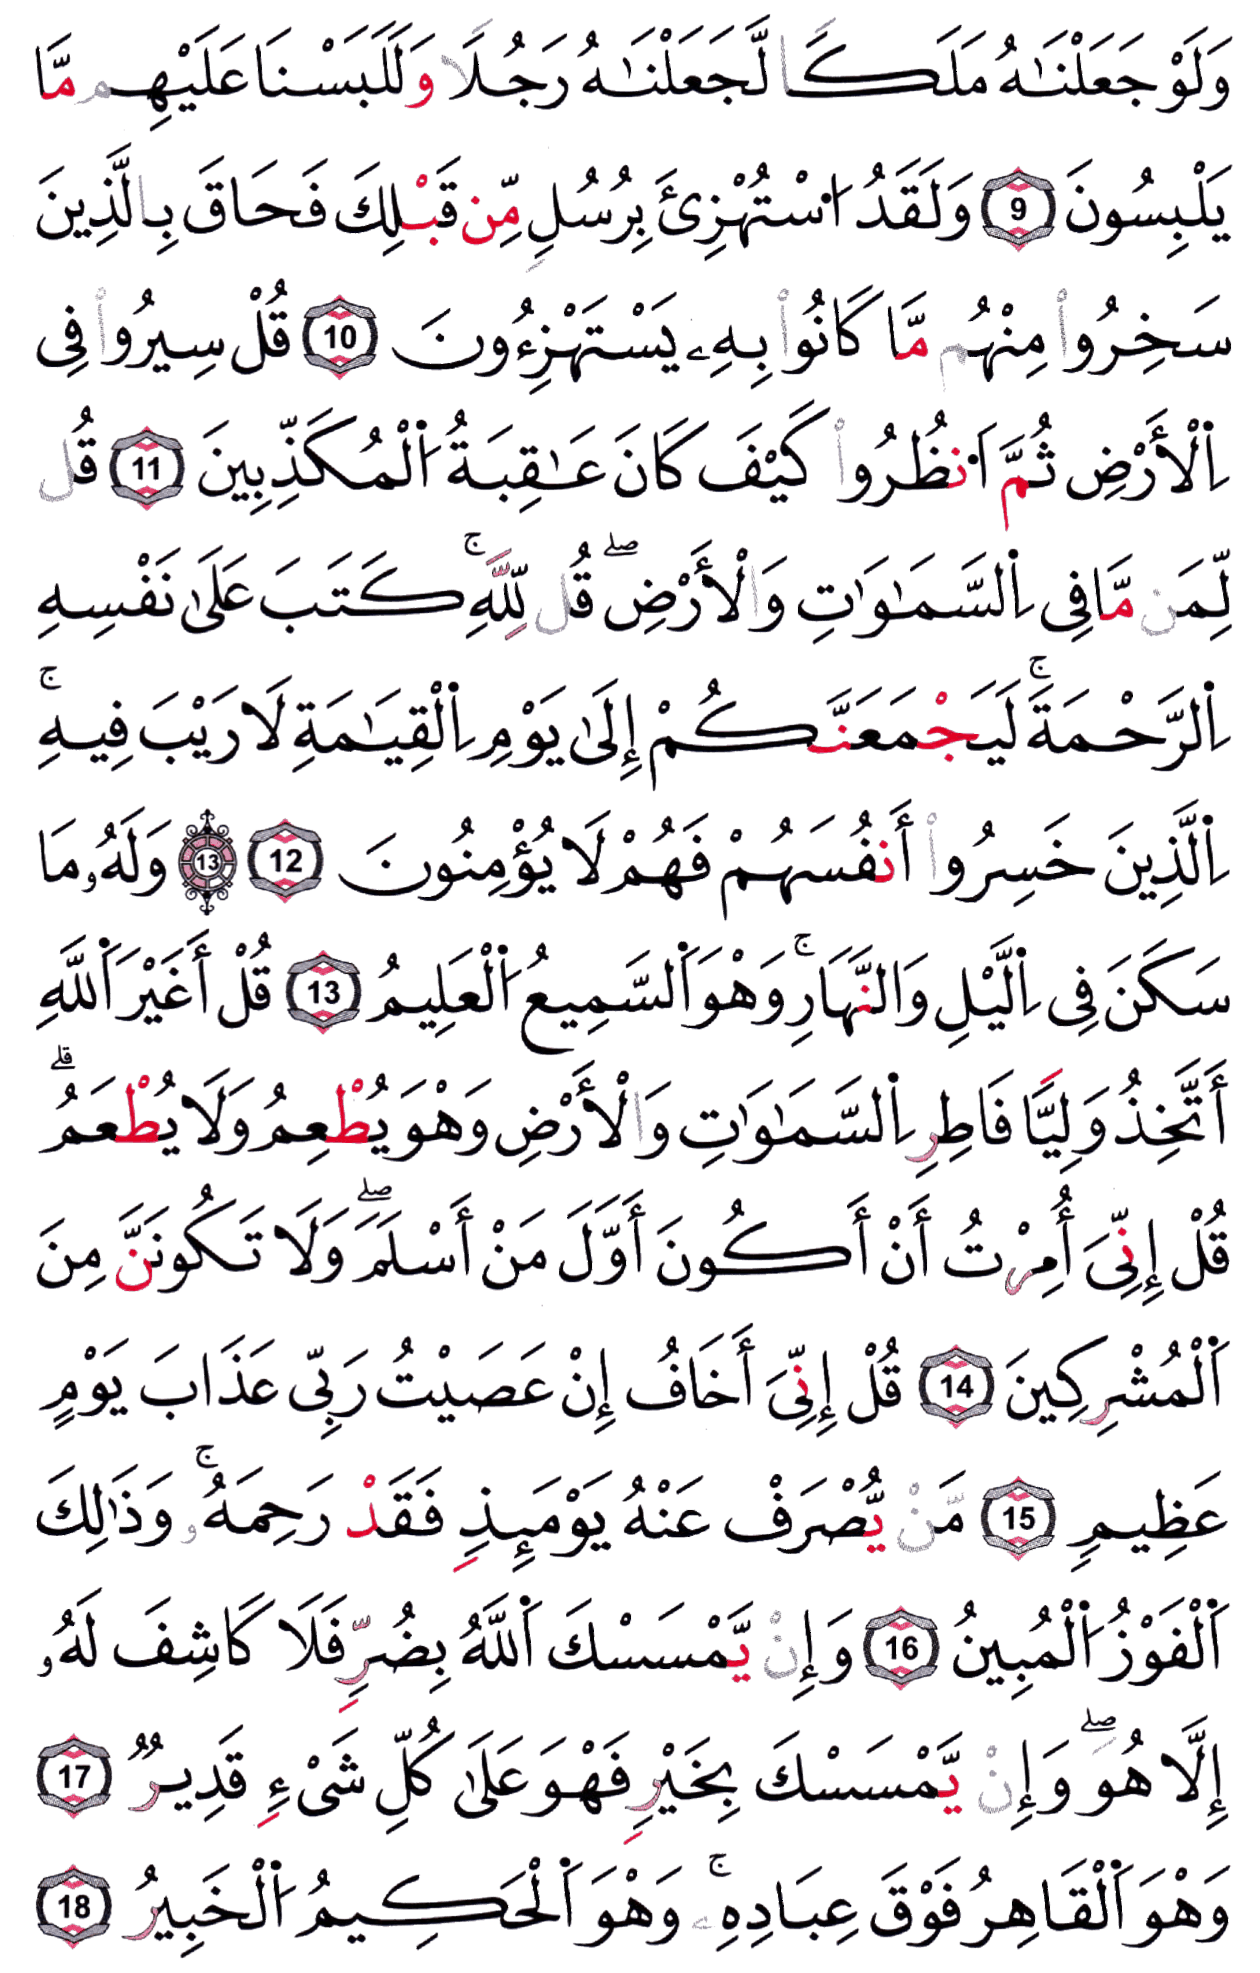 وَلَوْ جَعَلْنَٰهُ مَلَكًا لَّجَعَلْنَٰهُ رَجُلًا وَلَلَبَسْنَا عَلَيْهِم مَّا
يَلْبِسُونَ 9 وَلَقَدُ اَ۟سْتُهْزِئَ بِرُسُلٍ مِّن قَبْلِكَ فَحَاقَ بِالَّذِينَ
سَخِرُواْ مِنْهُم مَّا كَانُواْ بِهِۦ يَسْتَهْزِءُونَ 10 قُلْ سِيرُواْ فِى
اِ۬لْأَرْضِ ثُمَّ اَ۟نظُرُواْ كَيْفَ كَانَ عَٰقِبَةُ اُ۬لْمُكَذِّبِينَ 11 قُل
لِّمَن مَّا فِى اِ۬لسَّمَٰوَٰتِ وَالْأَرْضِۖ قُل لِّلَّهِۚ كَتَبَ عَلَىٰ نَفْسِهِ
اِ۬لرَّحْمَةَۚ لَيَجْمَعَنَّكُمْ إِلَىٰ يَوْمِ اِ۬لْقِيَٰمَةِ لَا رَيْبَ فِيهِۚ
اِ۬لَّذِينَ خَسِرُواْ أَنفُسَهُمْ فَهُمْ لَا يُؤْمِنُونَ 12 13 وَلَهُۥ مَا
سَكَنَ فِى اِ۬لَّيْلِ وَالنَّهَارِۚ وَهْوَ اَ۬لسَّمِيعُ اُ۬لْعَلِيمُ 13 قُلْ أَغَيْرَ اَ۬للَّهِ
أَتَّخِذُ وَلِيًّا فَاطِرِ اِ۬لسَّمَٰوَٰتِ وَالْأَرْضِ وَهْوَ يُطْعِمُ وَلَا يُطْعَمُۗ
قُلْ إِنِّىَ أُمِرْتُ أَنْ أَكُونَ أَوَّلَ مَنْ أَسْلَمَۖ وَلَا تَكُونَنَّ مِنَ
اَ۬لْمُشْرِكِينَ 14 قُلْ إِنِّىَ أَخَافُ إِنْ عَصَيْتُ رَبِّى عَذَابَ يَوْمٍ
عَظِيمٍ 15 مَّنْ يُّصْرَفْ عَنْهُ يَوْمَئِذٍ فَقَدْ رَحِمَهُۥۚ وَذَٰلِكَ
اَ۬لْفَوْزُ اُ۬لْمُبِينُ 16 وَإِنْ يَّمْسَسْكَ اَ۬للَّهُ بِضُرٍّ فَلَا كَاشِفَ لَهُۥ
إِلَّا هُوَۖ وَإِنْ يَّمْسَسْكَ بِخَيْرٍ فَهْوَ عَلَىٰ كُلِّ شَىْءٍ قَدِيرٌ 17
وَهْوَ اَ۬لْقَاهِرُ فَوْقَ عِبَادِهِۦۚ وَهْوَ اَ۬لْحَكِيمُ اُ۬لْخَبِيرُ 18